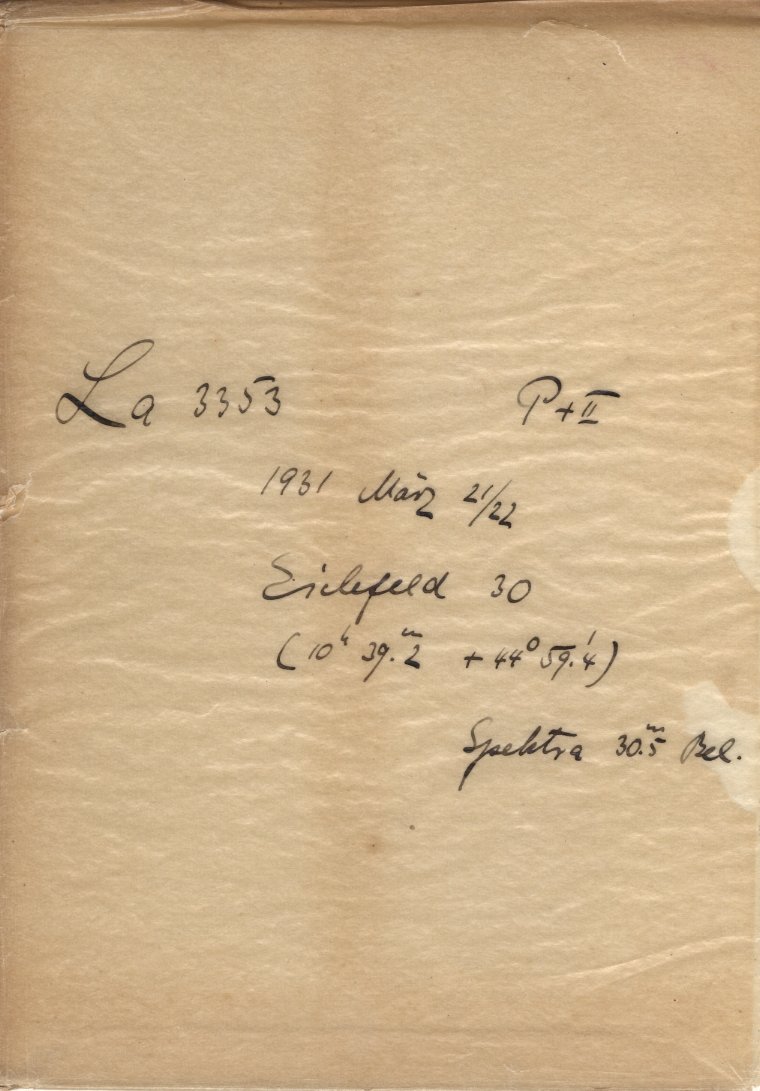 La 3353 P+II
1931 März 21/22
Eichfeld 30
(10ʰ 39.ᵐ2 +44° 59.'4)
Spektra 30.ᵐ5 Bel.